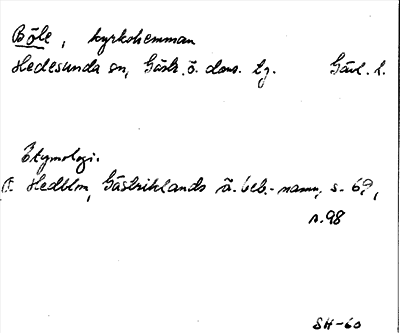 Böle, kyrkohemman
Hedesunda sn, Gästr. ö. doms. tg. Gävl. l.
Etymologi.
F. Hedblom, Gästriklands ä. beb.-namn, s. 69,
n. 98
SH-60